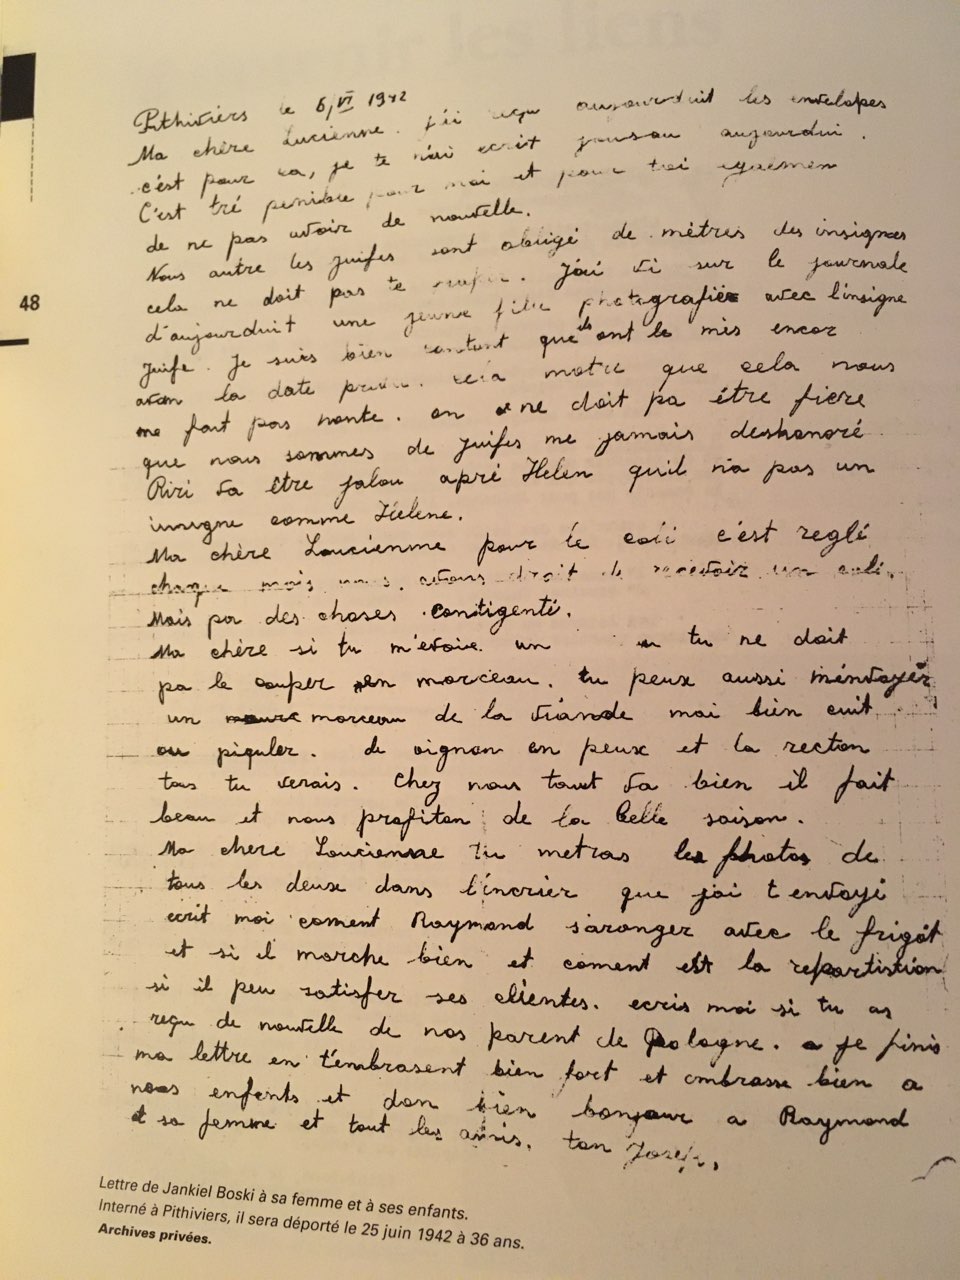 48
Pithiviers le 6/VI 1942
Ma chère Lucienne. j'ai reçu aujourduit les envelopes
c'est pour sa, je te n'ai ecrit jousau aujourdui.
C'est tré penible pour moi et pour toi egalmen
de ne pas avoir de nouvelle.
Nous autre les juifes sont obligé de mètres des insignes
cela ne doit pas te . J'ai vi sur le journale
d'aujourduit une jeune file photografiée avec l'insigne
juife. Je suis bien contant que ils ont le mis encor
avan la date prevu. cela motre que cela nous
ne fait pas honte. on ne doit pa être fiere
que nous sommes de juifes me jamais deshonoré
Riri va être jalou apré Helen qu'il n'a pas un
insigne comme Helene.
Ma chère Loucienne pour le coli c'est reglé
chaque mois nous avons droit de recevoir un coli.
Mais por des choses contigenté.
Ma chère si tu m'evoie un tu ne doit
pa le couper en morceau. tu peux aussi ménvoyer
un morceau de la viande mai bien cuit
ou piquler. de oignon en peux et la recton
tous tu verais. Chez nous tout va bien il fait
beau et nous profiton de la belle saison.
Ma chere Loucienne Tu metras les photos de
tous les deux dans l'éncrier que j'ai t envoyé
ecrit moi coment Raymond s'aranger avec le frigot
et si il marche bien et coment est la repartistion
si il peu satisfer ses clientes. ecris moi si tu as
reçu de nouvelle de nos parent de Pologne. je finis
ma lettre en t'embrasent bien fort et embrasse bien a
nous enfents et don bien bonjour a Raymond
et sa femme et tout les amis. ton Josef.
Lettre de Jankiel Boski à sa femme et à ses enfants.
Interné à Pithiviers, il sera déporté le 25 juin 1942 à 36 ans.
Archives privées.